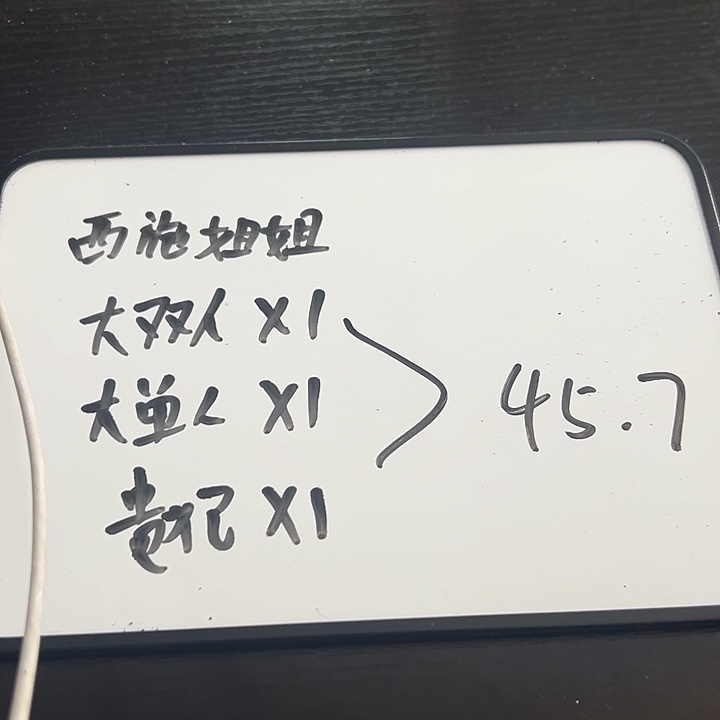 西施姐姐
大双人 X1
大单人 X1
45.7
贵妃 X1